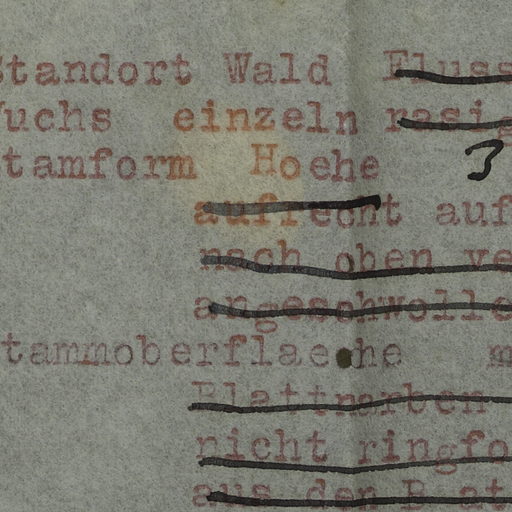 Standort Wald Fluss
Wuchs einzeln rasig
Stamform Hoehe 3
aufrecht auf
nach oben ve
angeschwolle
Stammoberflaeche m
Blattnarben
nicht ringfo
aus den B at